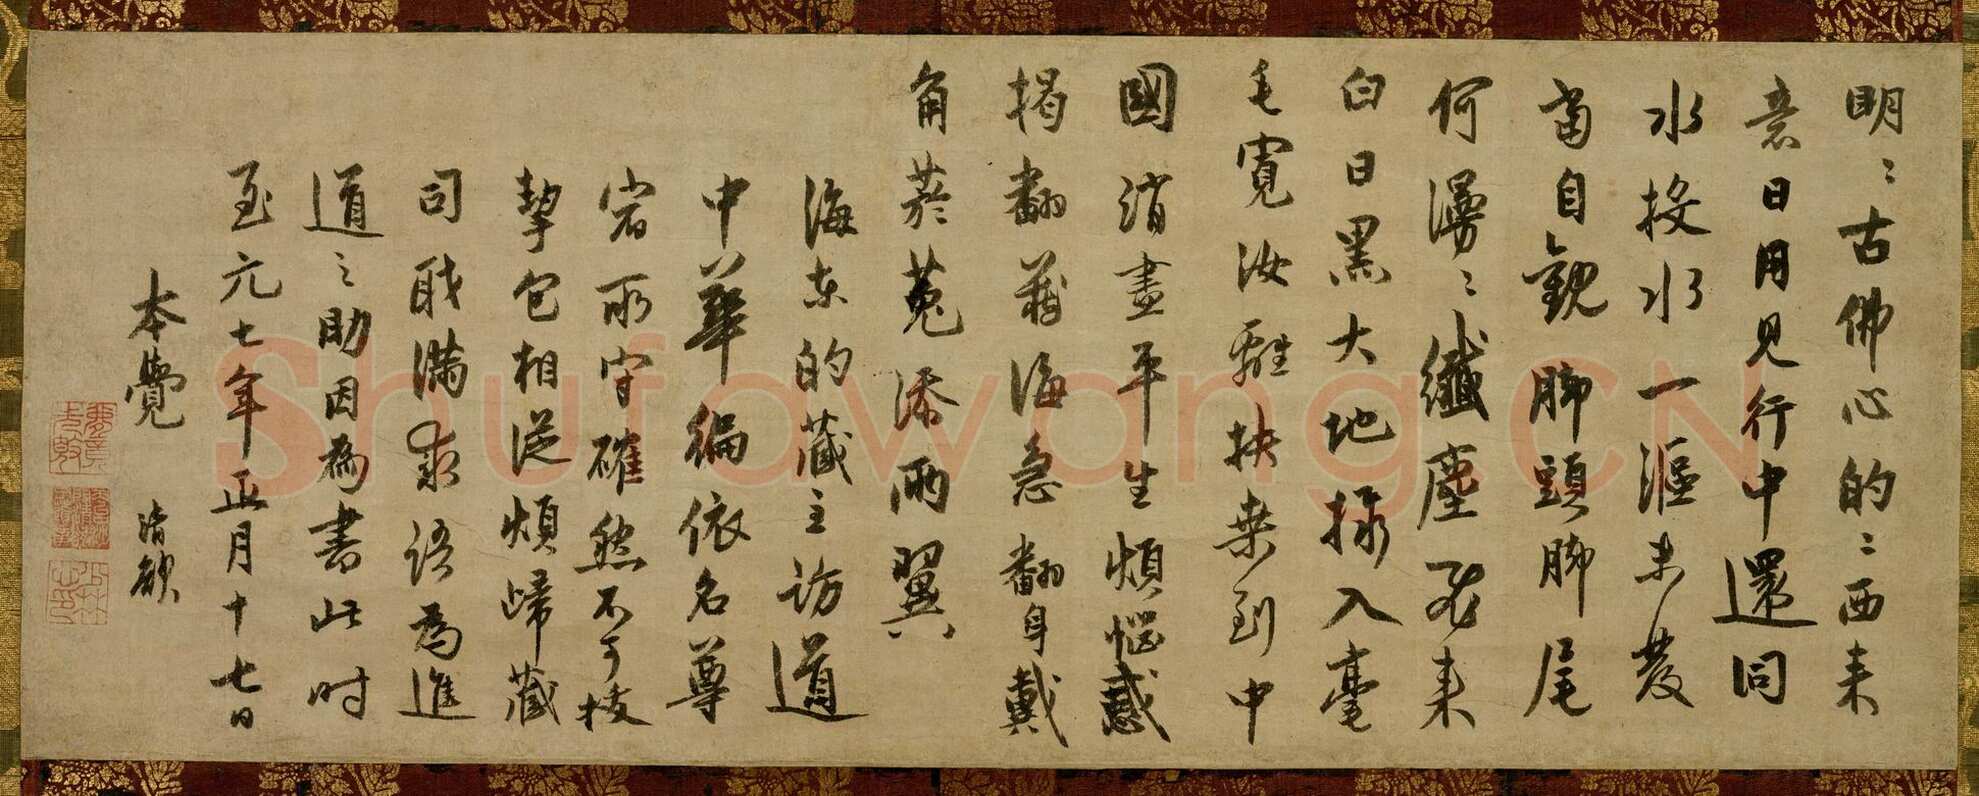 明〻古佛心的〻西来
意日用見行中還同
水投水一漚未發
當自觀脚頭脚尾
何漫〻纖塵不来
白日黑大地採入毫
毛寬汝離扶桑到中
國消盡平生煩惱惑
揭翻藏海急翻身戴
角於菟添兩翼
海東的藏主訪道
中華徧依名尊
宿所守確然不可拔
挈包相從煩歸藏
司職滿求語為進
道之助因為書此时
至元七年正月十七日
本覺 清欲
Shufawang.CN